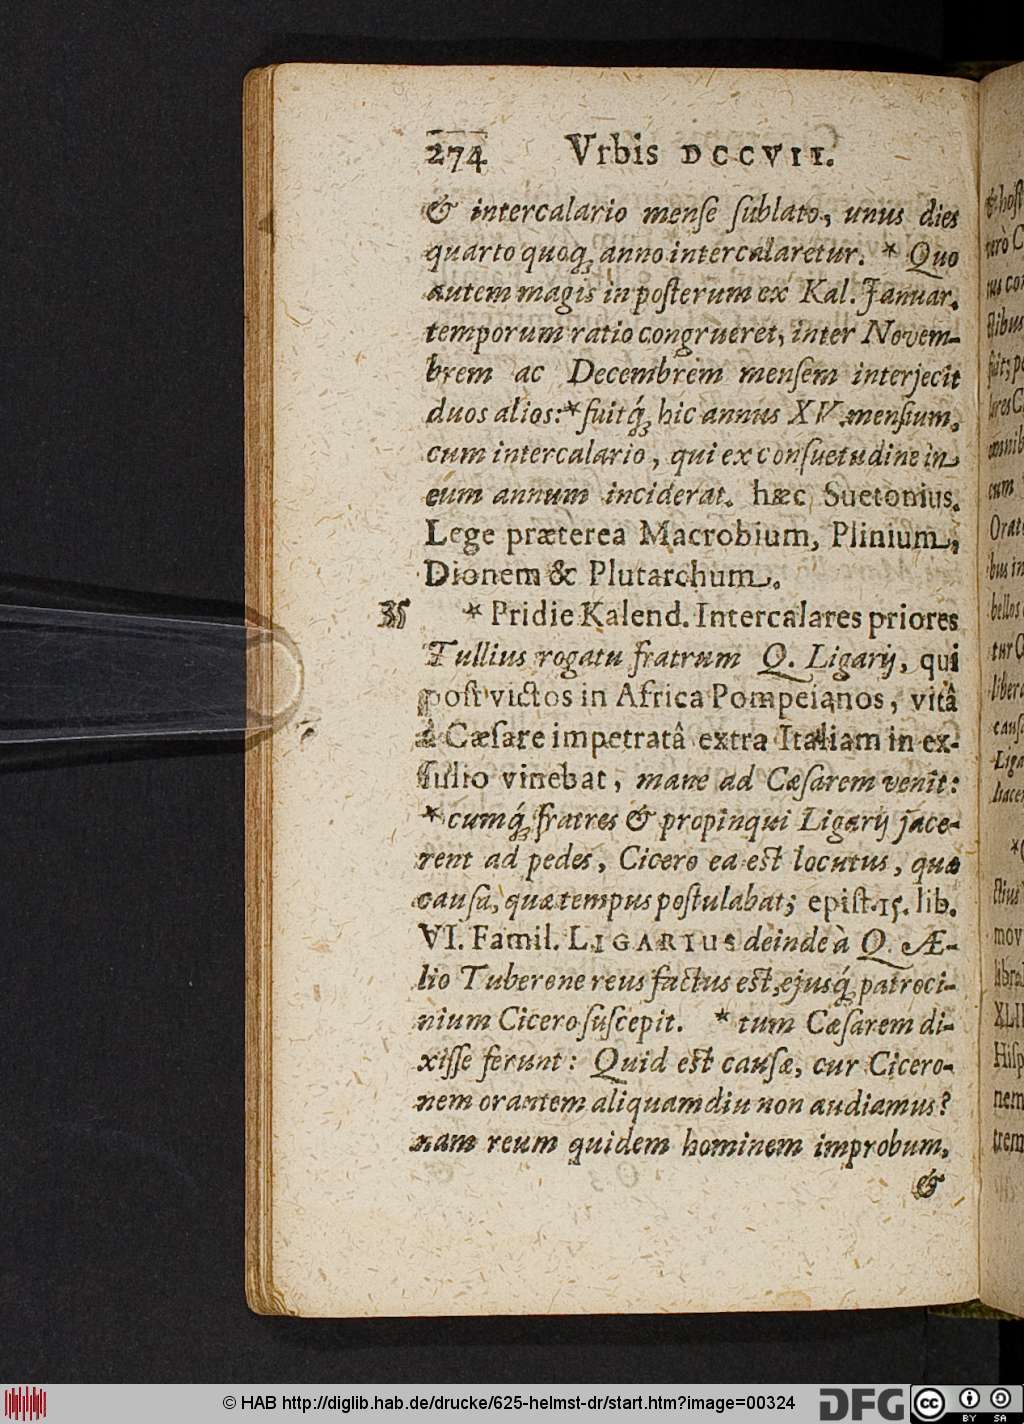 274 Vrbis DCCVII.
& intercalario mense ſublato, unus dies
quarto quoq; anno intercalaretur. * Quo
autem magis in poſterum ex Kal. Januar.
temporum ratio congrueret, inter Novem-
brem ac Decembrem menſem interjecit
duos alios: * fuitq́; hic annus XV. menſium,
cum intercalario, qui ex conſuetudine in
eum annum inciderat. hæc Suetonius.
Lege præterea Macrobium, Plinium,
Dionem & Plutarchum.
35 * Pridie Kalend. Intercalares priores
Tullius rogatu fratrum Q. Ligarij, qui
poſt victos in Africa Pompeianos, vitâ
à Cæſare impetratâ extra Italiam in ex-
ſulio vinebat, mane ad Cæſarem venit:
* cumq́; fratres & propinqui Ligarij jace-
rent ad pedes, Cicero ea eſt locutus, quæ
cauſa, quæ tempus poſtulabat; epiſt. 15. lib.
VI. Famil. LIGARIUS deinde à Q. Æ-
lio Tuberone reus factus eſt, ejusq́; patroci-
nium Cicero ſuſcepit. * tum Cæſarem di-
xiſſe ferunt: Quid eſt cauſæ, cur Cicero-
nem orantem aliquamdiu non audiamus?
nam reum quidem hominem improbum,
&
© HAB http://diglib.hab.de/drucke/625-helmst-dr/start.htm?image=00324
DFG
cc BY SA